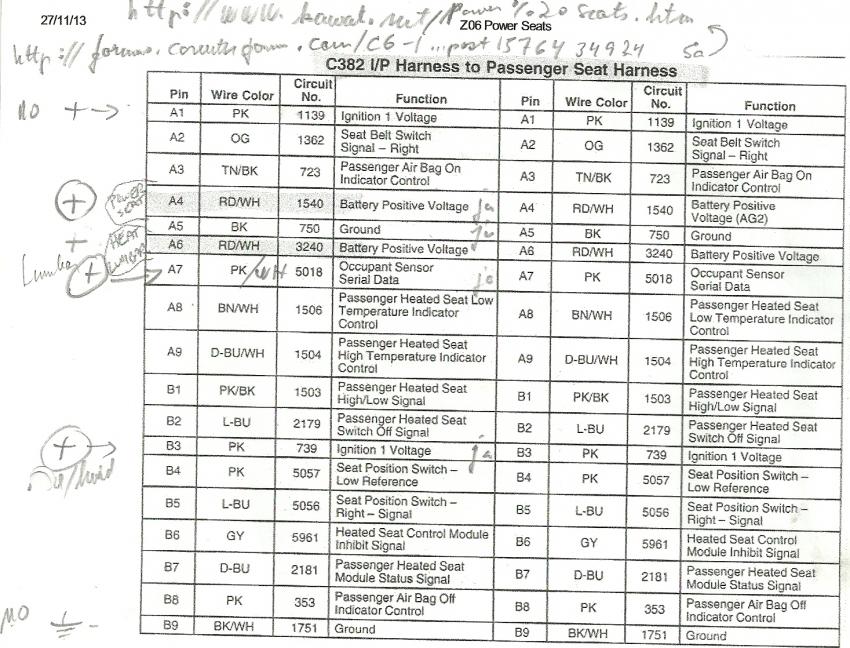 27/11/13
http://www.kawat.net/Power%20seats.htm
Z06 Power Seats
C382 I/P Harness to Passenger Seat Harness
Pin Wire Color Circuit No. Function Pin Wire Color Circuit No. Function
NO + →
A1 PK 1139 Ignition 1 Voltage A1 PK 1139 Ignition 1 Voltage
A2 OG 1362 Seat Belt Switch Signal – Right A2 OG 1362 Seat Belt Switch Signal – Right
A3 TN/BK 723 Passenger Air Bag On Indicator Control A3 TN/BK 723 Passenger Air Bag On Indicator Control
+ POWER SEAT
A4 RD/WH 1540 Battery Positive Voltage ja A4 RD/WH 1540 Battery Positive Voltage (AG2)
A5 BK 750 Ground A5 BK 750 Ground
+ HEAT
A6 RD/WH 3240 Battery Positive Voltage A6 RD/WH 3240 Battery Positive Voltage
+
A7 PK/WH 5018 Occupant Sensor Serial Data A7 PK 5018 Occupant Sensor Serial Data
A8 BN/WH 1506 Passenger Heated Seat Low Temperature Indicator Control A8 BN/WH 1506 Passenger Heated Seat Low Temperature Indicator Control
A9 D-BU/WH 1504 Passenger Heated Seat High Temperature Indicator Control A9 D-BU/WH 1504 Passenger Heated Seat High Temperature Indicator Control
B1 PK/BK 1503 Passenger Heated Seat High/Low Signal B1 PK/BK 1503 Passenger Heated Seat High/Low Signal
B2 L-BU 2179 Passenger Heated Seat Switch Off Signal B2 L-BU 2179 Passenger Heated Seat Switch Off Signal
+ →
B3 PK 739 Ignition 1 Voltage ja B3 PK 739 Ignition 1 Voltage
B4 PK 5057 Seat Position Switch – Low Reference B4 PK 5057 Seat Position Switch – Low Reference
B5 L-BU 5056 Seat Position Switch – Right – Signal B5 L-BU 5056 Seat Position Switch – Right – Signal
B6 GY 5961 Heated Seat Control Module Inhibit Signal B6 GY 5961 Heated Seat Control Module Inhibit Signal
B7 D-BU 2181 Passenger Heated Seat Module Status Signal B7 D-BU 2181 Passenger Heated Seat Module Status Signal
B8 PK 353 Passenger Air Bag Off Indicator Control B8 PK 353 Passenger Air Bag Off Indicator Control
NO
B9 BK/WH 1751 Ground B9 BK/WH 1751 Ground